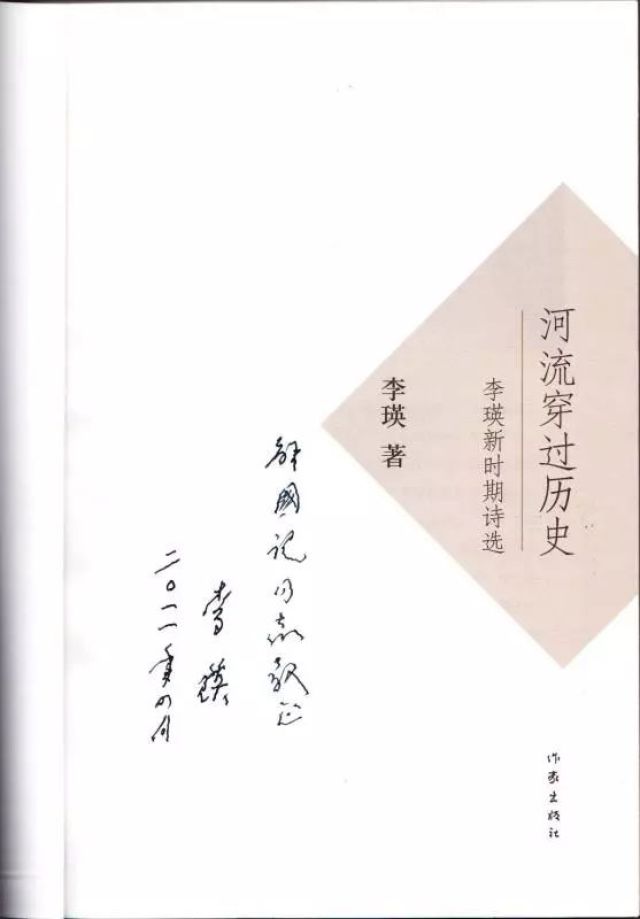 河流穿过历史
李瑛新时期诗选
李瑛 著
解國记同志教正
李瑛
二〇一一年四月
作家出版社